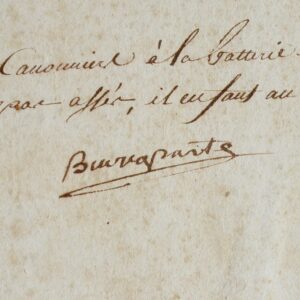 Canonniers à la batterie
pas assés, il en faut au
Buonaparte